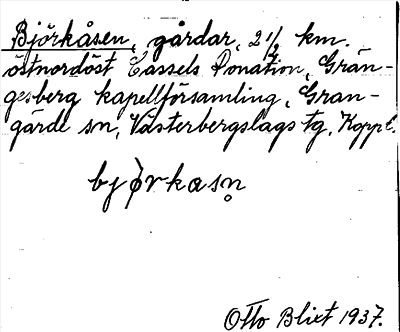 Björkåsen, gårdar, 2 1/2 km.
östnordöst Cassels Donation, Grän-
gesberg kapellförsamling, Gran-
gärde sn, Västerbergslags tg, Koppb.
bjòrkasn̥
Otto Blixt 1937.